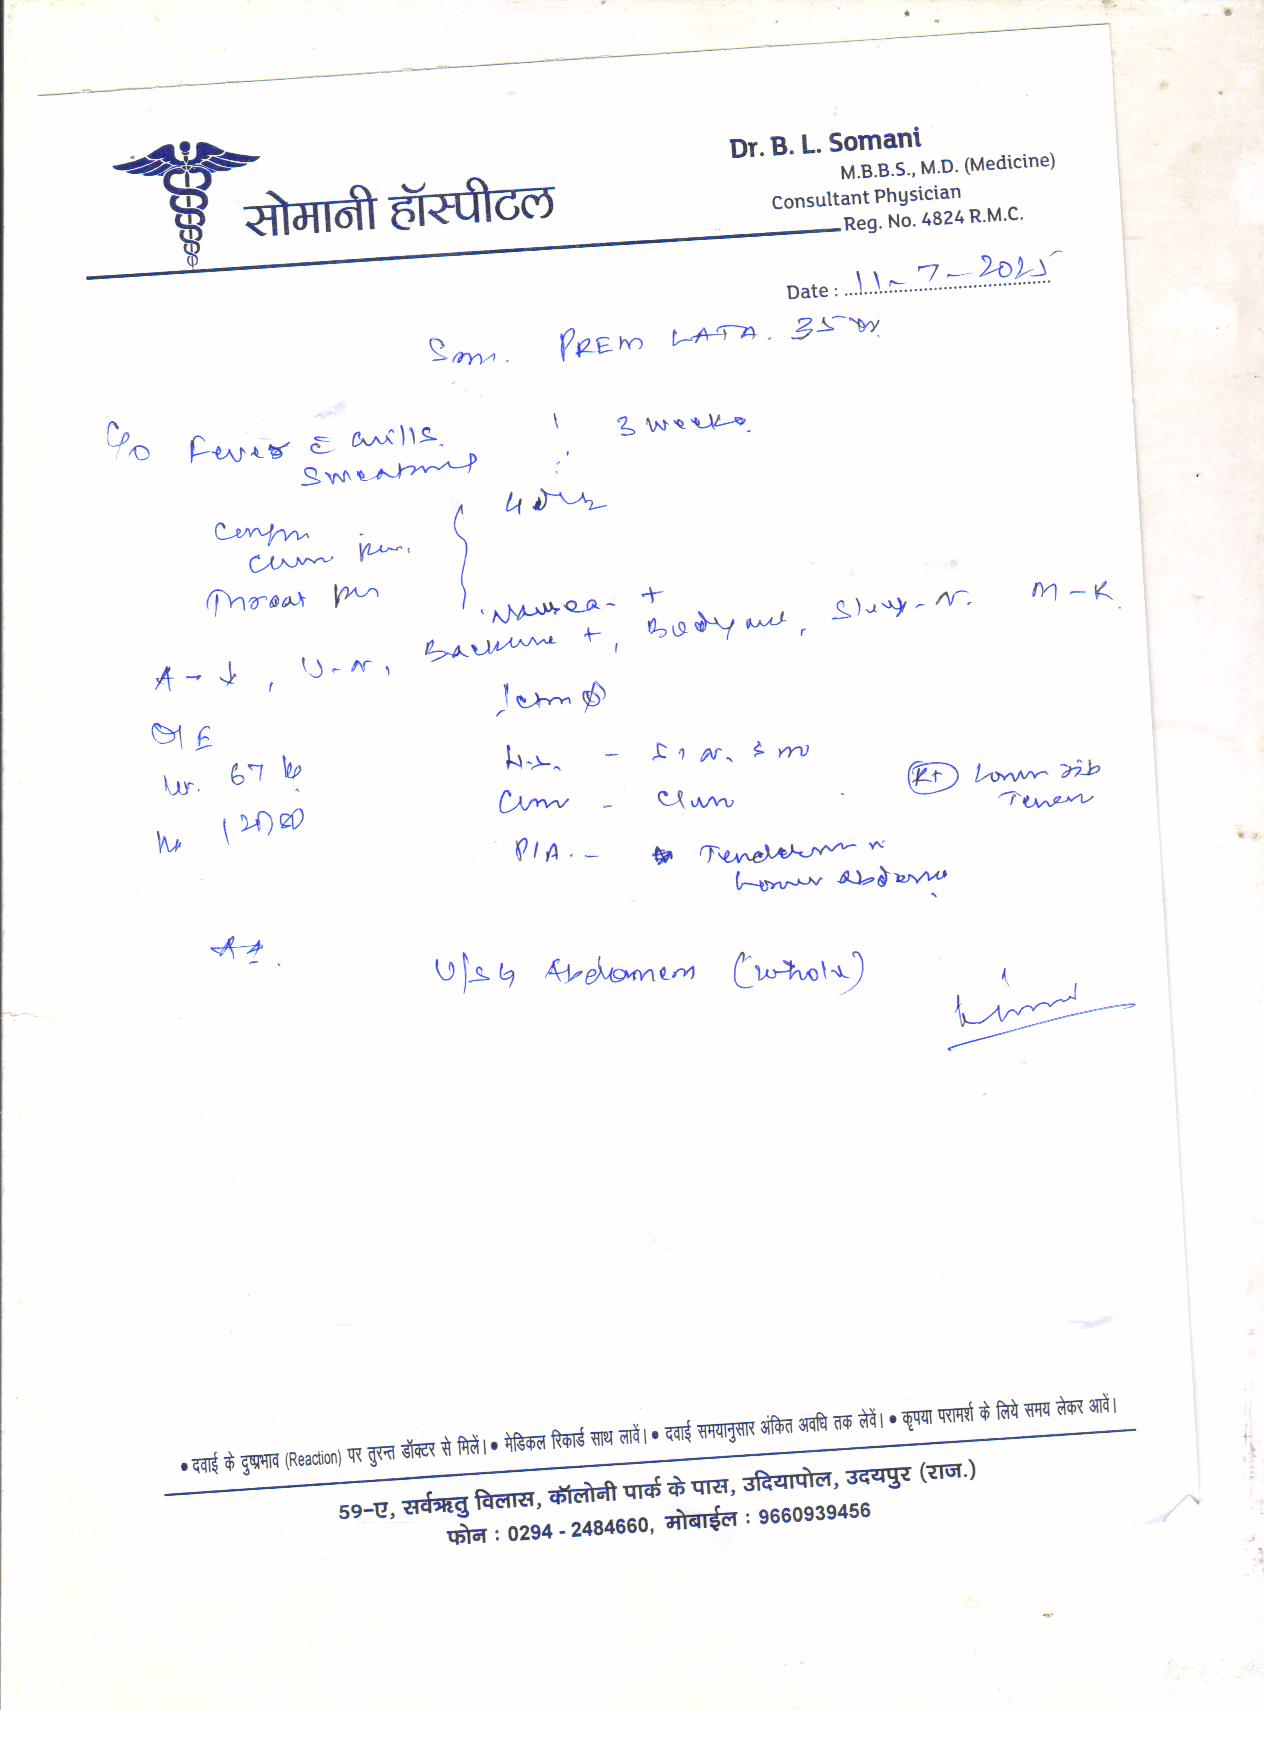 सोमानी हॉस्पीटल
Dr. B. L. Somani
M.B.B.S., M.D. (Medicine)
Consultant Physician
Reg. No. 4824 R.M.C.
Date : 11-7-2025
Smt. PREM LATA. 35
C/O Fever c chills. : 3 weeks.
Sweating
Throat
Nausea - +
A - ↓, U-N, Backache +, Bodyache, Sleep-N. M-K.
O/E
Wt. 67 kg
120/80
- S1 N. S M
- Clear
Rt Lower rib
P/A. - Tenderness
Lower abdomen
U/SG Abdomen (whole)
• दवाई के दुष्प्रभाव (Reaction) पर तुरन्त डॉक्टर से मिलें। • मेडिकल रिकार्ड साथ लावें। • दवाई समयानुसार अंकित अवधि तक लेवें। • कृपया परामर्श के लिये समय लेकर आवें।
59-ए, सर्वऋतु विलास, कॉलोनी पार्क के पास, उदियापोल, उदयपुर (राज.)
फोन : 0294 - 2484660, मोबाईल : 9660939456